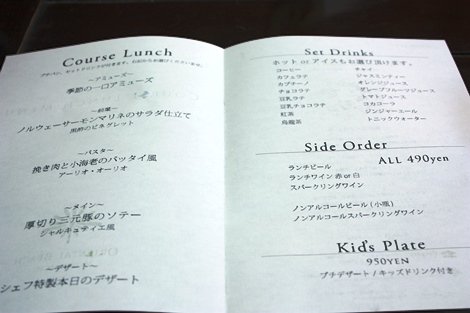 Course Lunch
プチパン、セットドリンクが付きます。右記からお選びくださいませ。
～アミューズ～
季節の一口アミューズ
～前菜～
ノルウェーサーモンマリネのサラダ仕立て
黒酢のビネグレット
～パスタ～
挽き肉と小海老のパッタイ風
アーリオ・オーリオ
～メイン～
厚切り三元豚のソテー
ジャルキュティエ風
～デザート～
シェフ特製本日のデザート
Set Drinks
ホット or アイスもお選び頂けます。
コーヒー チャイ
カフェラテ ジャスミンティー
カプチーノ オレンジジュース
チョコラテ グレープフルーツジュース
豆乳ラテ トマトジュース
豆乳チョコラテ コカコーラ
紅茶 ジンジャーエール
烏龍茶 トニックウォーター
Side Order
ALL 490yen
ランチビール
ランチワイン 赤 or 白
スパークリングワイン
ノンアルコールビール (小瓶)
ノンアルコールスパークリングワイン
Kid's Plate
950YEN
プチデザート / キッズドリンク付き